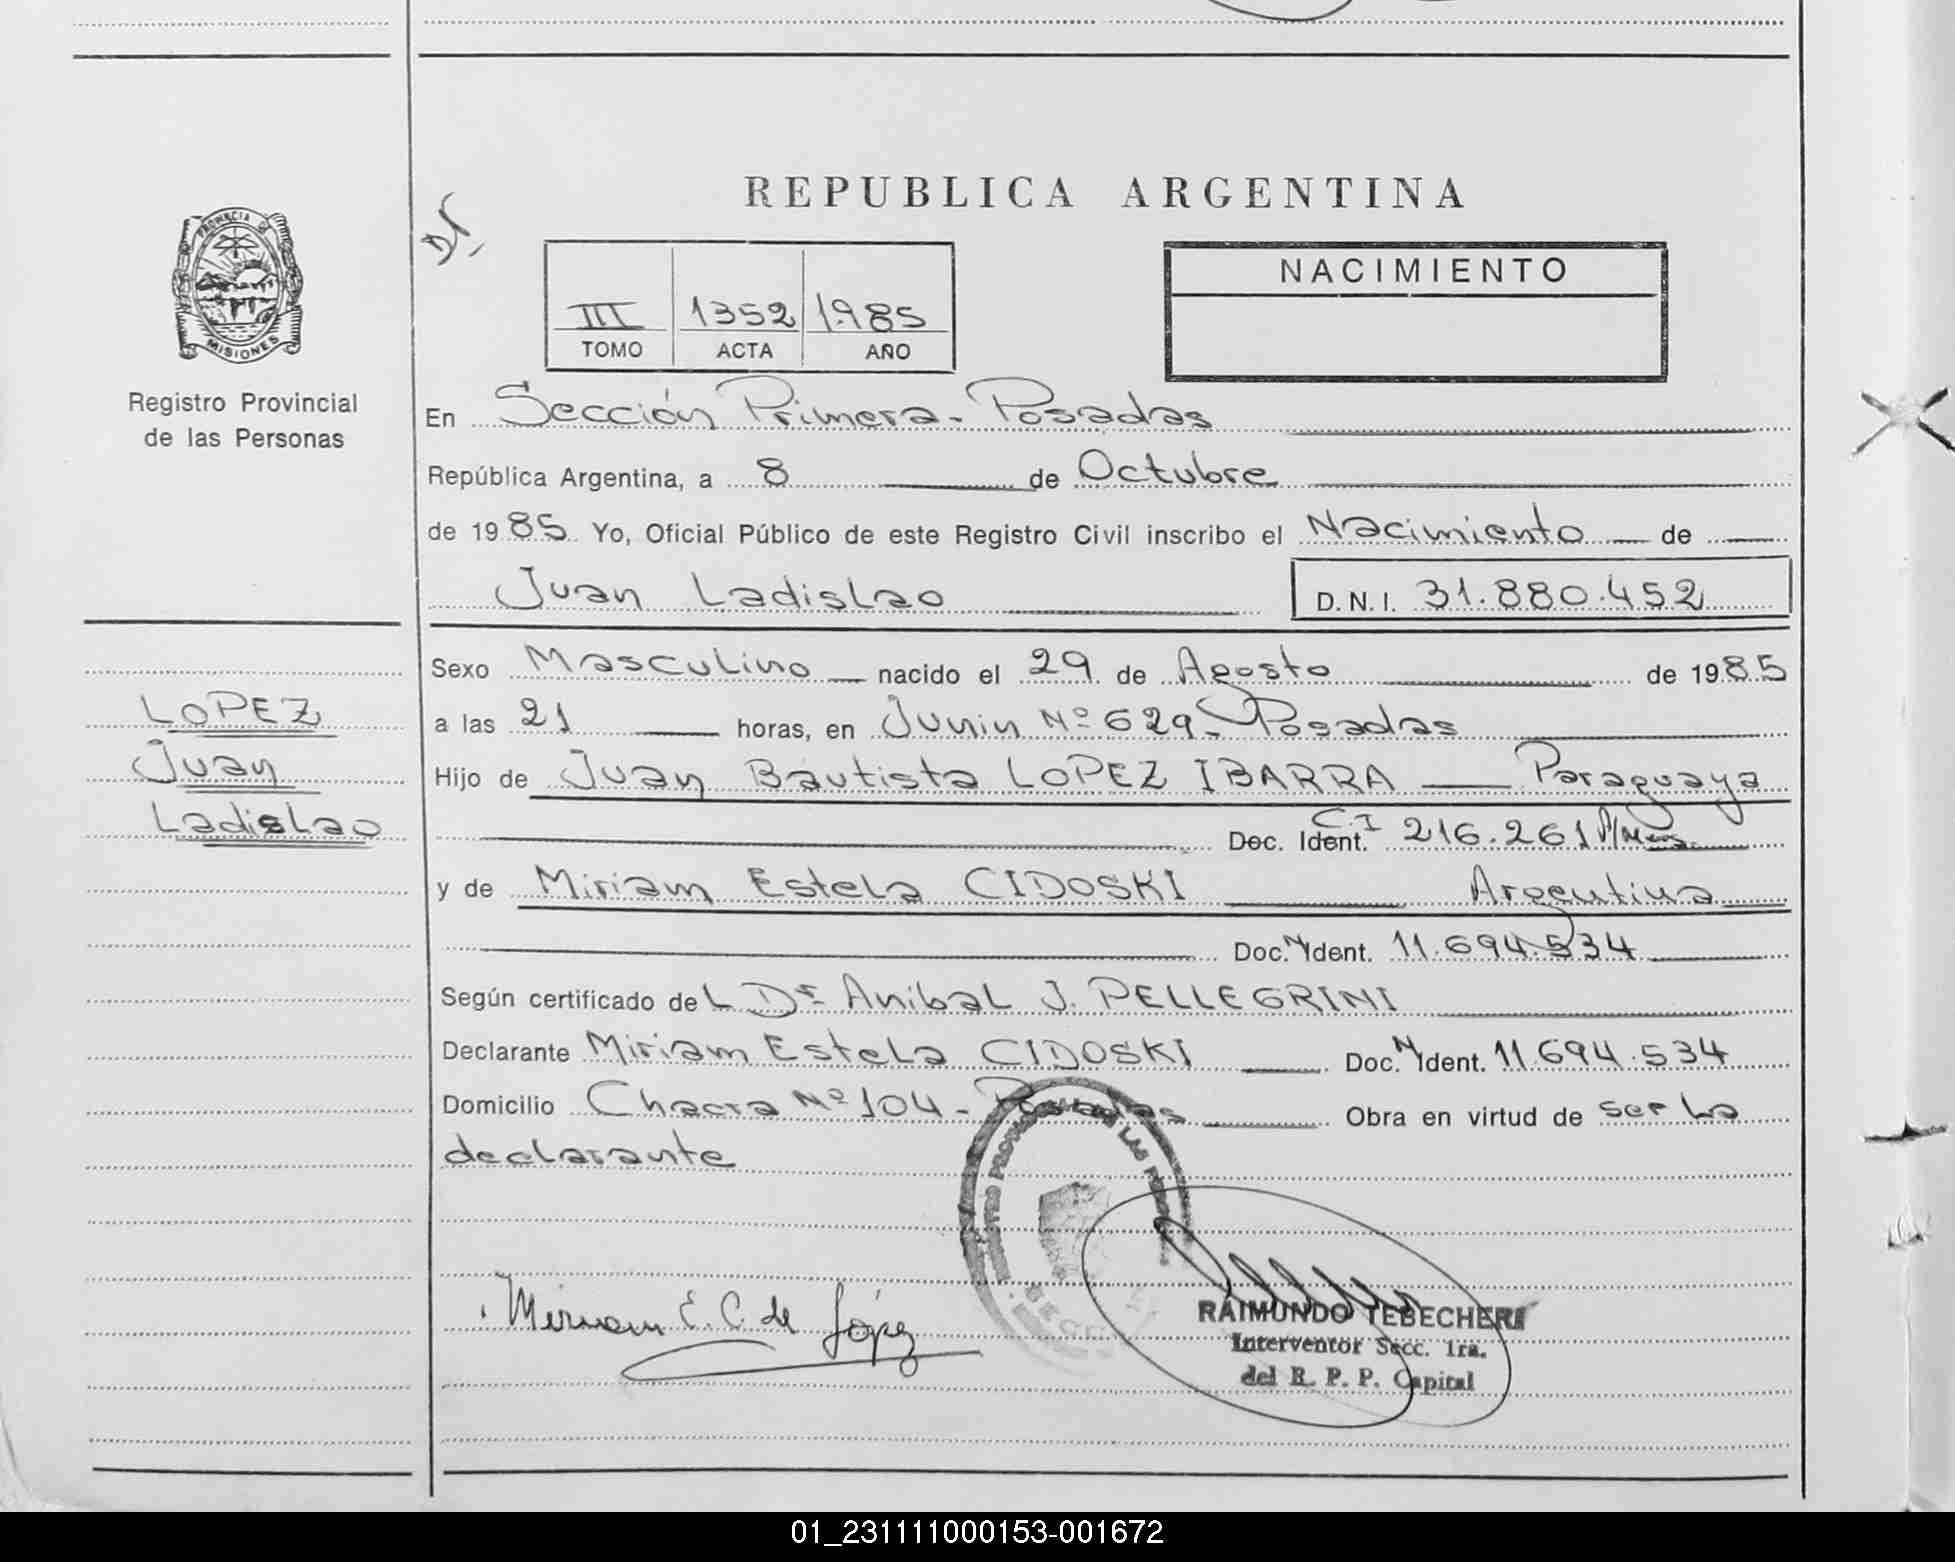 REPUBLICA ARGENTINA
PROVINCIA DE
MISIONES
Registro Provincial
de las Personas
III 1352 1985
TOMO ACTA AÑO
NACIMIENTO
En Sección Primera - Posadas
República Argentina, a 8 de Octubre
de 1985 Yo, Oficial Público de este Registro Civil inscribo el Nacimiento de
Juan Ladislao D.N.I. 31.880.452
LOPEZ
Juan
Ladislao
Sexo Masculino nacido el 29 de Agosto de 1985
a las 21 horas, en Junin Nº 629 - Posadas
Hijo de Juan Bautista LOPEZ IBARRA Paraguaya
Doc. Ident. C.I 216.261
y de Miriam Estela CIDOSKI Argentina
Doc. Ident. 11.694.534
Según certificado deL Dr. Anibal J. PELLEGRINI
Declarante Miriam Estela CIDOSKI Doc. Ident. 11.694.534
Domicilio Chacra Nº 104 - Posadas Obra en virtud de ser La
declarante
Miriam E. C. de López
RAIMUNDO TEBECHERI
Interventor Secc. 1ra.
del R. P. P. Capital
01_231111000153-001672